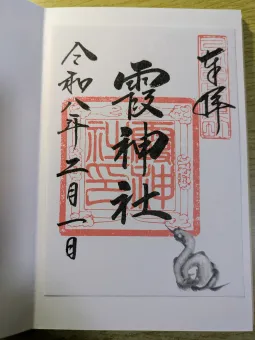 奉拝
霞神社
令和八年二月一日